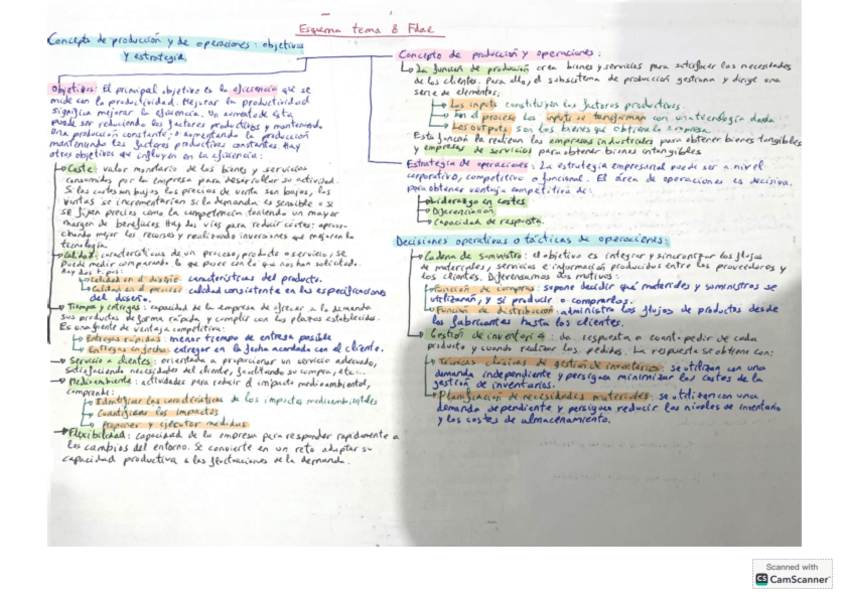 Esquema tema 8 Fdae
Concepto de producción y de operaciones: objetivos
y estrategia
Objetivos: El principal objetivo es la eficiencia que se
mide con la productividad. Mejorar la productividad
significa mejorar la eficiencia. Un aumento de ésta
puede ser reduciendo los factores productivos y manteniendo
una producción constante, o aumentando la producción
manteniendo los factores productivos constantes. Hay
otros objetivos que influyen en la eficiencia:
Coste: valor monetario de los bienes y servicios
consumidos por la empresa para desarrollar su actividad.
Si los costes son bajos, los precios de venta son bajos, las
ventas se incrementarían si la demanda es sensible o si
se fijan precios como la competencia teniendo un mayor
margen de beneficios. Hay dos vías para reducir costes: aprove-
chando mejor los recursos y realizando inversiones que mejoren la
tecnología.
Calidad: características de un proceso, producto o servicio, se
puede medir comparando lo que posee con lo que nos han solicitado.
Hay dos tipos:
Calidad en el diseño: características del producto.
Calidad en el proceso: calidad consistente en las especificaciones
del diseño.
Tiempo y entregas: capacidad de la empresa de ofrecer a la demanda
sus productos de forma rápida y cumplir con los plazos establecidos.
Es una fuente de ventaja competitiva:
Entregas rápidas: menor tiempo de entrega posible
Entregas en fecha: entregar en la fecha acordada con el cliente.
Servicio a clientes: orientada a proporcionar un servicio adecuado,
satisfaciendo necesidades del cliente, facilitando su compra, etc...
Medioambiente: actividades para reducir el impacto medioambiental,
comprende:
Identificar las características de los impactos medioambientales
Cuantificar los impactos
Proponer y ejecutar medidas
Flexibilidad: capacidad de la empresa para responder rápidamente a
los cambios del entorno. Se convierte en un reto adaptar su
capacidad productiva a las fluctuaciones de la demanda.
Concepto de producción y operaciones:
La función de producción crea bienes y servicios para satisfacer las necesidades
de los clientes. Para ello, el subsistema de producción gestiona y dirige una
serie de elementos:
Los inputs constituyen los factores productivos.
En el proceso los inputs se transforman con una tecnología dada
Los outputs son los bienes que obtiene la empresa.
Esta función la realizan las empresas industriales para obtener bienes tangibles
y empresas de servicios para obtener bienes intangibles
Estrategia de operaciones: La estrategia empresarial puede ser a nivel
corporativo, competitivo o funcional. El área de operaciones es decisiva
para obtener ventaja competitiva de:
Liderazgo en costes
Diferenciación
Capacidad de respuesta.
Decisiones operativas o tácticas de operaciones:
Cadena de suministro: el objetivo es integrar y sincronizar los flujos
de materiales, servicios e información producidos entre los proveedores y
los clientes. Diferenciamos dos motivos:
Función de compras: supone decidir qué materiales y suministros se
utilizarán, y si producir o comprarlos.
Función de distribución: administra los flujos de productos desde
los fabricantes hasta los clientes.
Gestión de inventarios: da respuesta a cuánto pedir de cada
producto y cuándo realizar los pedidos. La respuesta se obtiene con:
Técnicas clásicas de gestión de inventarios: se utilizan con una
demanda independiente y persiguen minimizar los costes de la
gestión de inventarios.
Planificación de necesidades materiales: se utilizan con una
demanda dependiente y persiguen reducir los niveles de inventario
y los costes de almacenamiento.
Scanned with
CS CamScanner